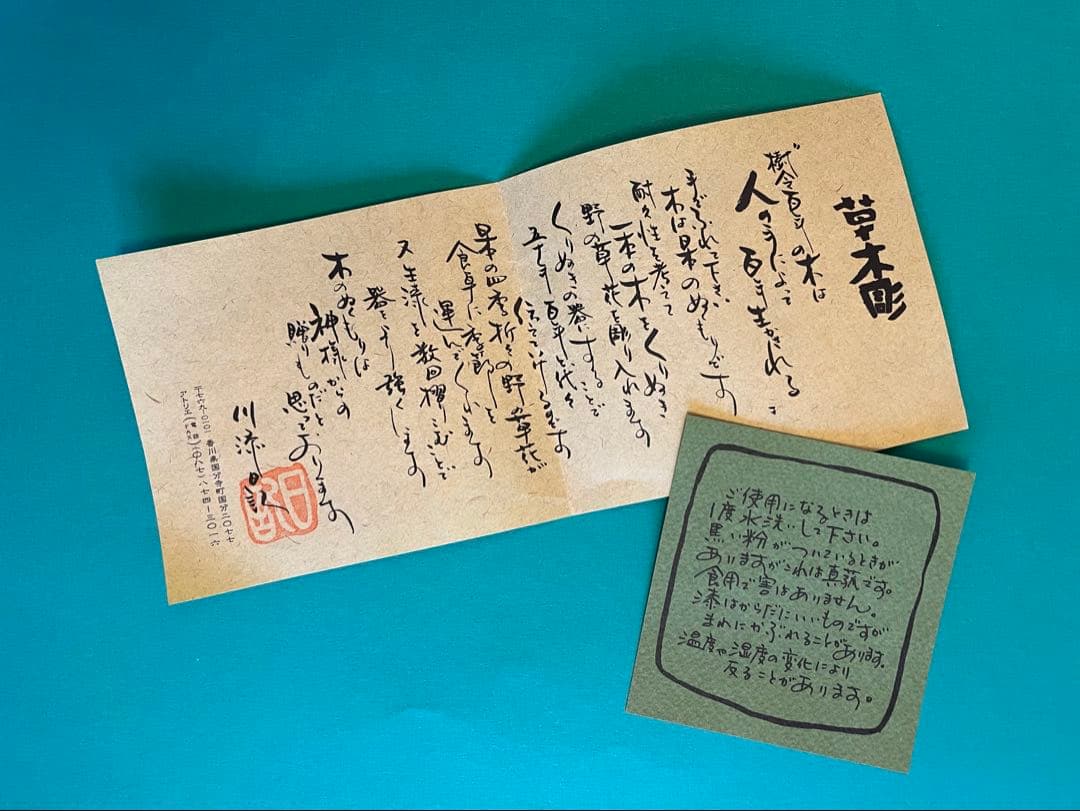 草木彫
樹令百年の木は
人の手によって
百年生かされる
手でふれて下さい
木は日本のぬくもりです
耐久性を考えて
一本の木をくりぬき
野の草花を彫り入れます
くりぬきの器にすることで
五十年百年と代々
伝えていけます
日本の四季折々の野の草花が
食卓に季節を
運んでくれます
又生漆を数回摺りこむことで
器をより強くします
木のぬくもりは
神様からの
贈りものだと
思っております
〒七六九-〇一〇一 香川県国分寺町国分二〇七七
アトリエ(電話)(〇八七)八七四-三〇一六
ご使用になるときは
1度水洗いして下さい。
黒い粉がついているときが
ありますがこれは真菰です。
食用で害はありません。
漆はからだにいいものですが
まれにかぶれることがあります。
温度や湿度の変化により
反ることがあります。